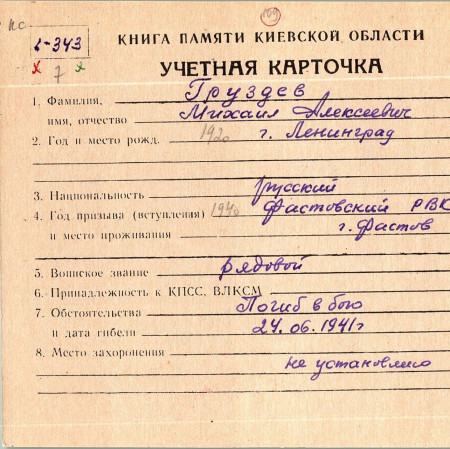 109
КС
6-343
х 7 х
КНИГА ПАМЯТИ КИЕВСКОЙ ОБЛАСТИ
УЧЕТНАЯ КАРТОЧКА
1. Фамилия, Груздев
имя, отчество Михаил Алексеевич
2. Год и место рожд. 1920 г. Ленинград
3. Национальность русский
4. Год призыва (вступления) 1940 Фастовский РВК
и место проживания г. Фастов
5. Воинское звание рядовой
6. Принадлежность к КПСС, ВЛКСМ
7. Обстоятельства Погиб в бою
и дата гибели 24.06.1941г
8. Место захоронения
не установлено